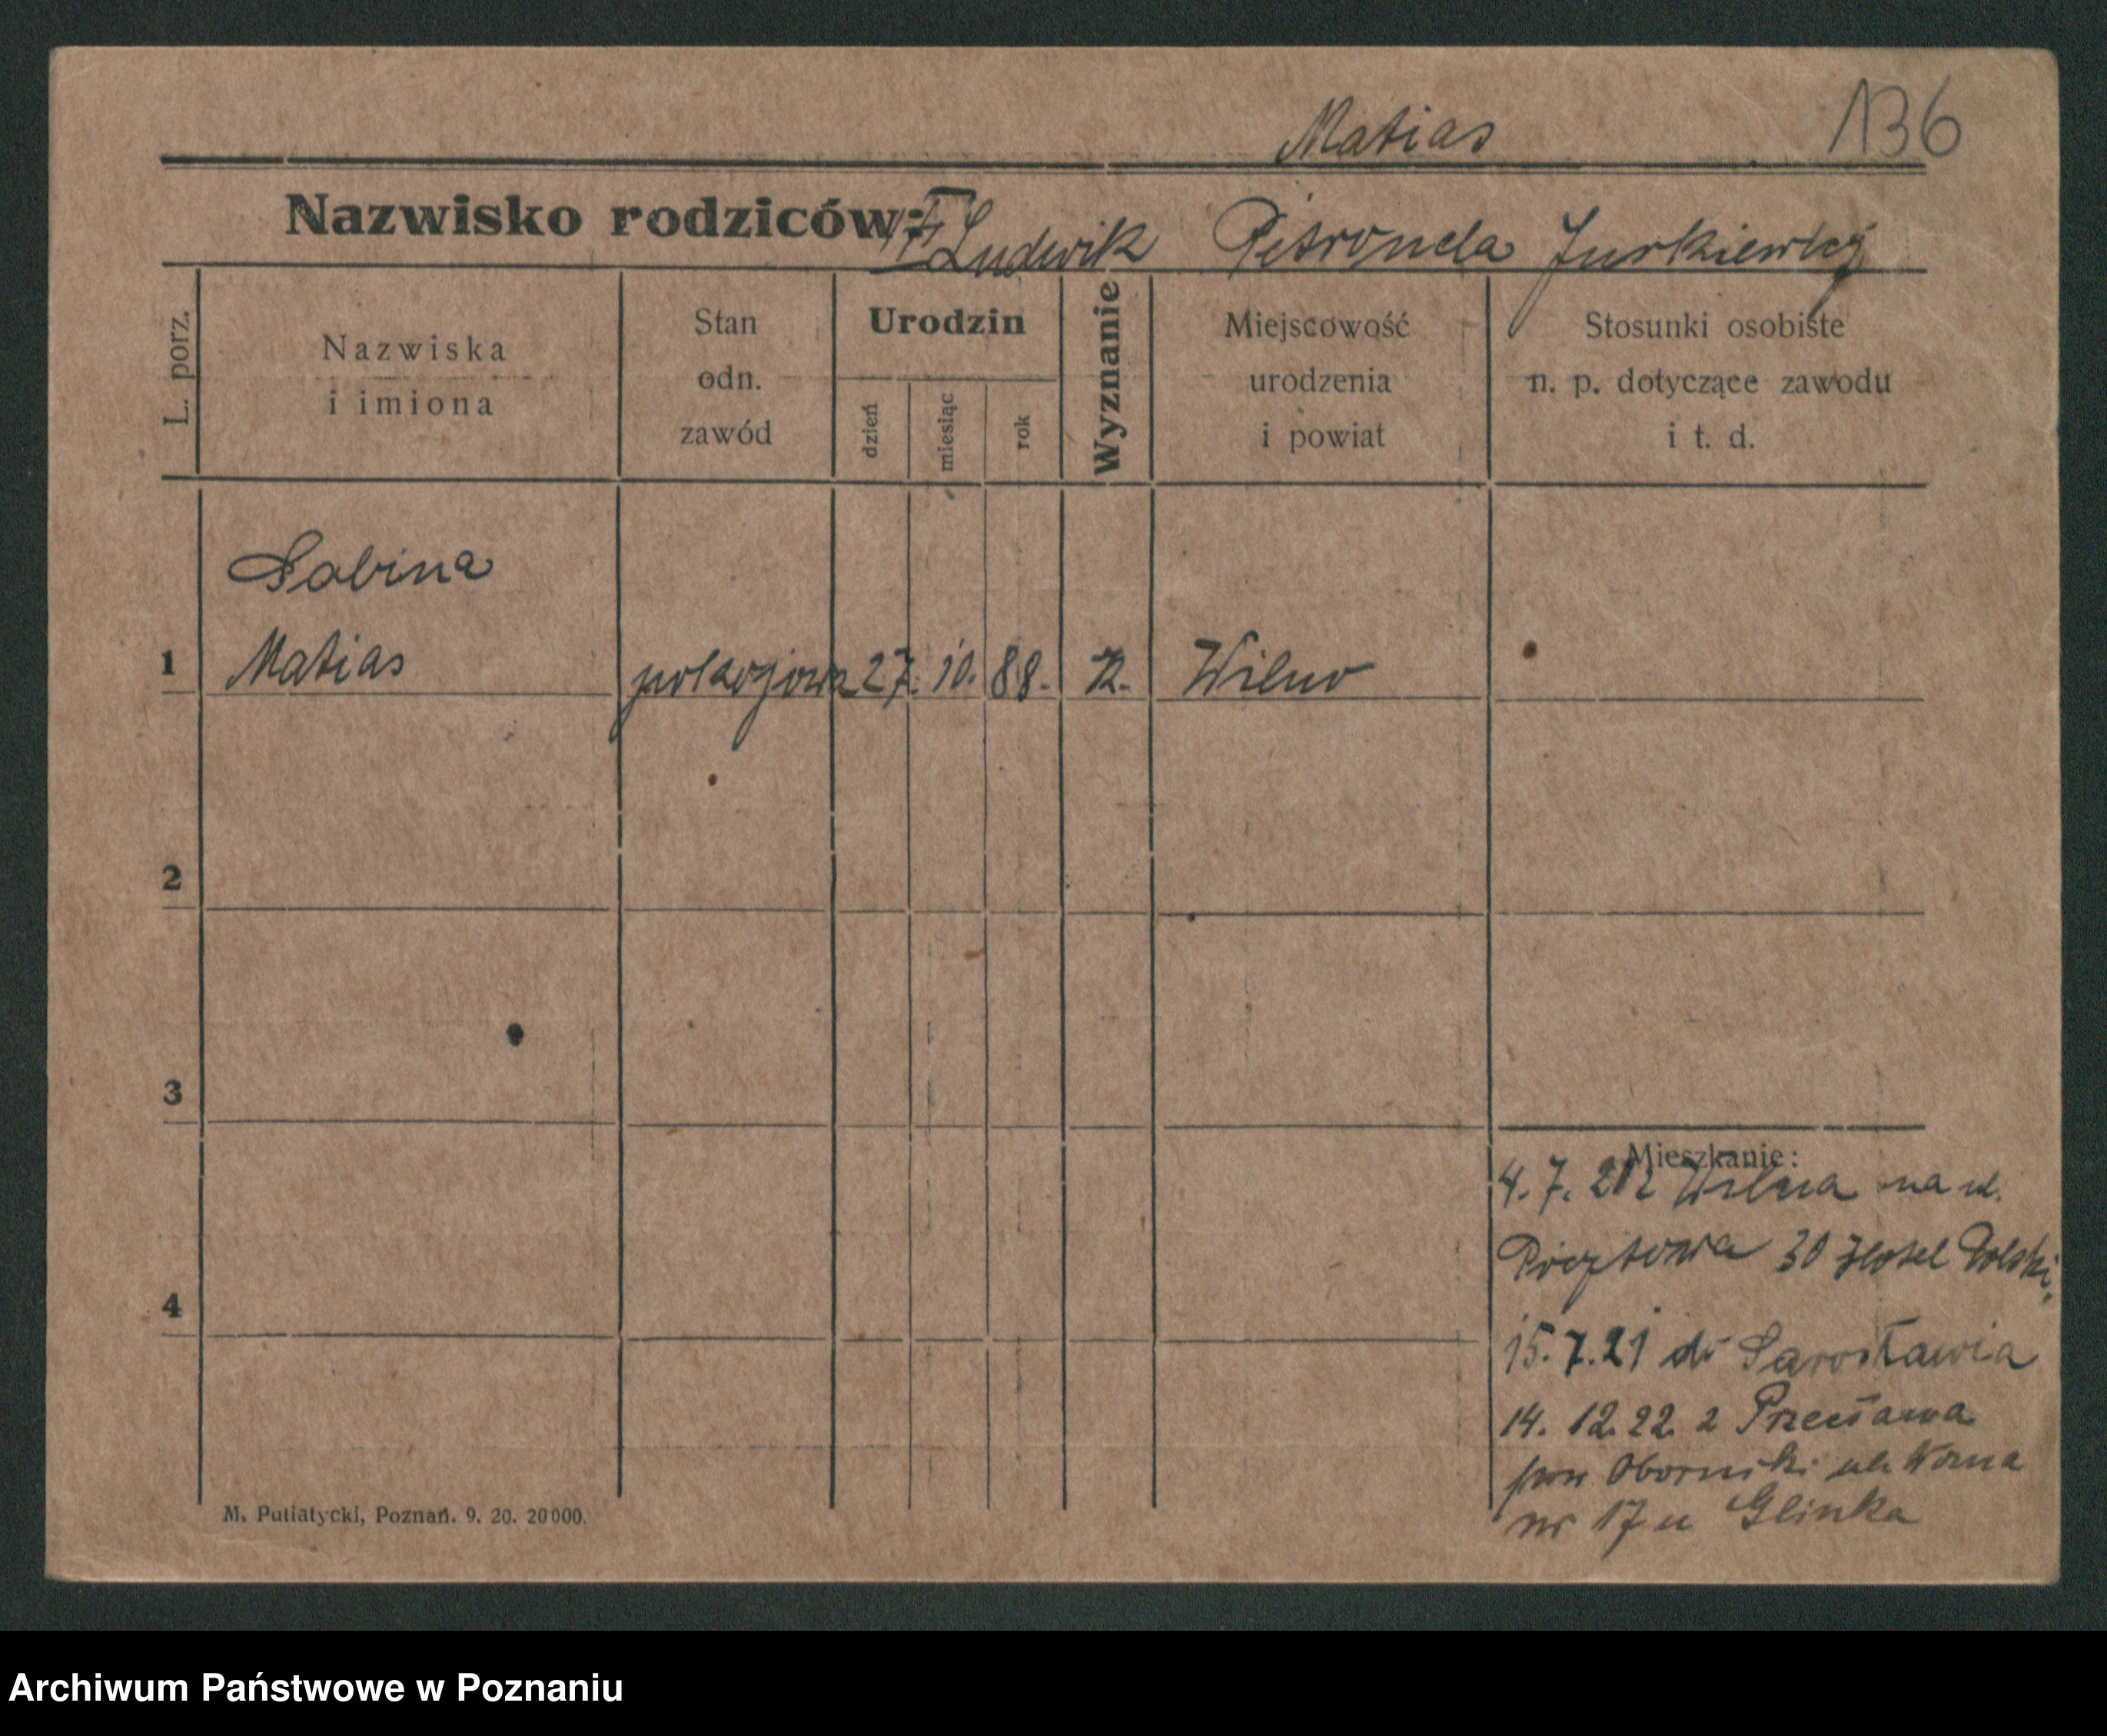 Matias 136
Nazwisko rodziców: Ludwik Petronela
L. porz.
Nazwiska
i imiona
Stan
odn.
zawód
Urodzin
dzień
miesiąc
rok
Wyznanie
Miejscowość
urodzenia
i powiat
Stosunki osobiste
n. p. dotyczące zawodu
i t. d.
Sabina
1 Matias pokojowa 27. 10. 88. K. Wilno
2
3
Mieszkanie:
4. 7. 21 z Wilna na ul.
Pocztowa 30 Hotel Polski,
4
15. 7. 21 do Jarosławia
14. 12. 22 z
pow Oborniki ul. Wozna
nr 17 u Glinka
M. Putiatycki, Poznań. 9. 20. 20000.
Archiwum Państwowe w Poznaniu